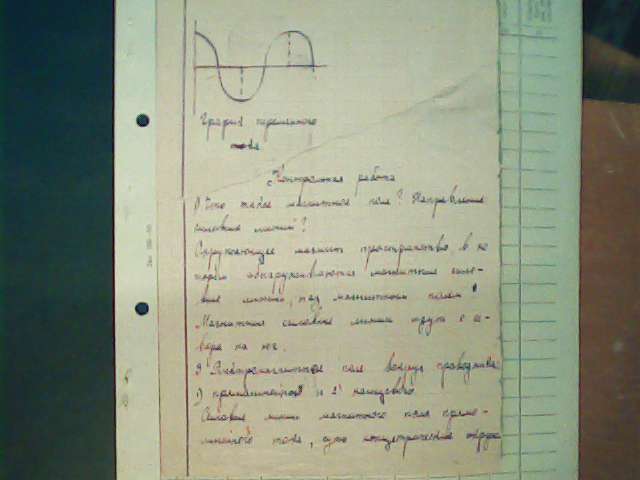 График переменного
тока
Контрольная работа
1) Что такое магнитное поле? Направление
силовых линий?
Окружающее магнит пространство, в ко-
тором обнаруживаются магнитные сило-
вые линии, наз. магнитным полем.
Магнитные силовые линии идут с се-
вера на юг.
2) Электромагнитное поле вокруг проводника:
1) прямолинейного и 2)
Силовые линии магнитного поля прямо-
линейного тока, суть концетрические